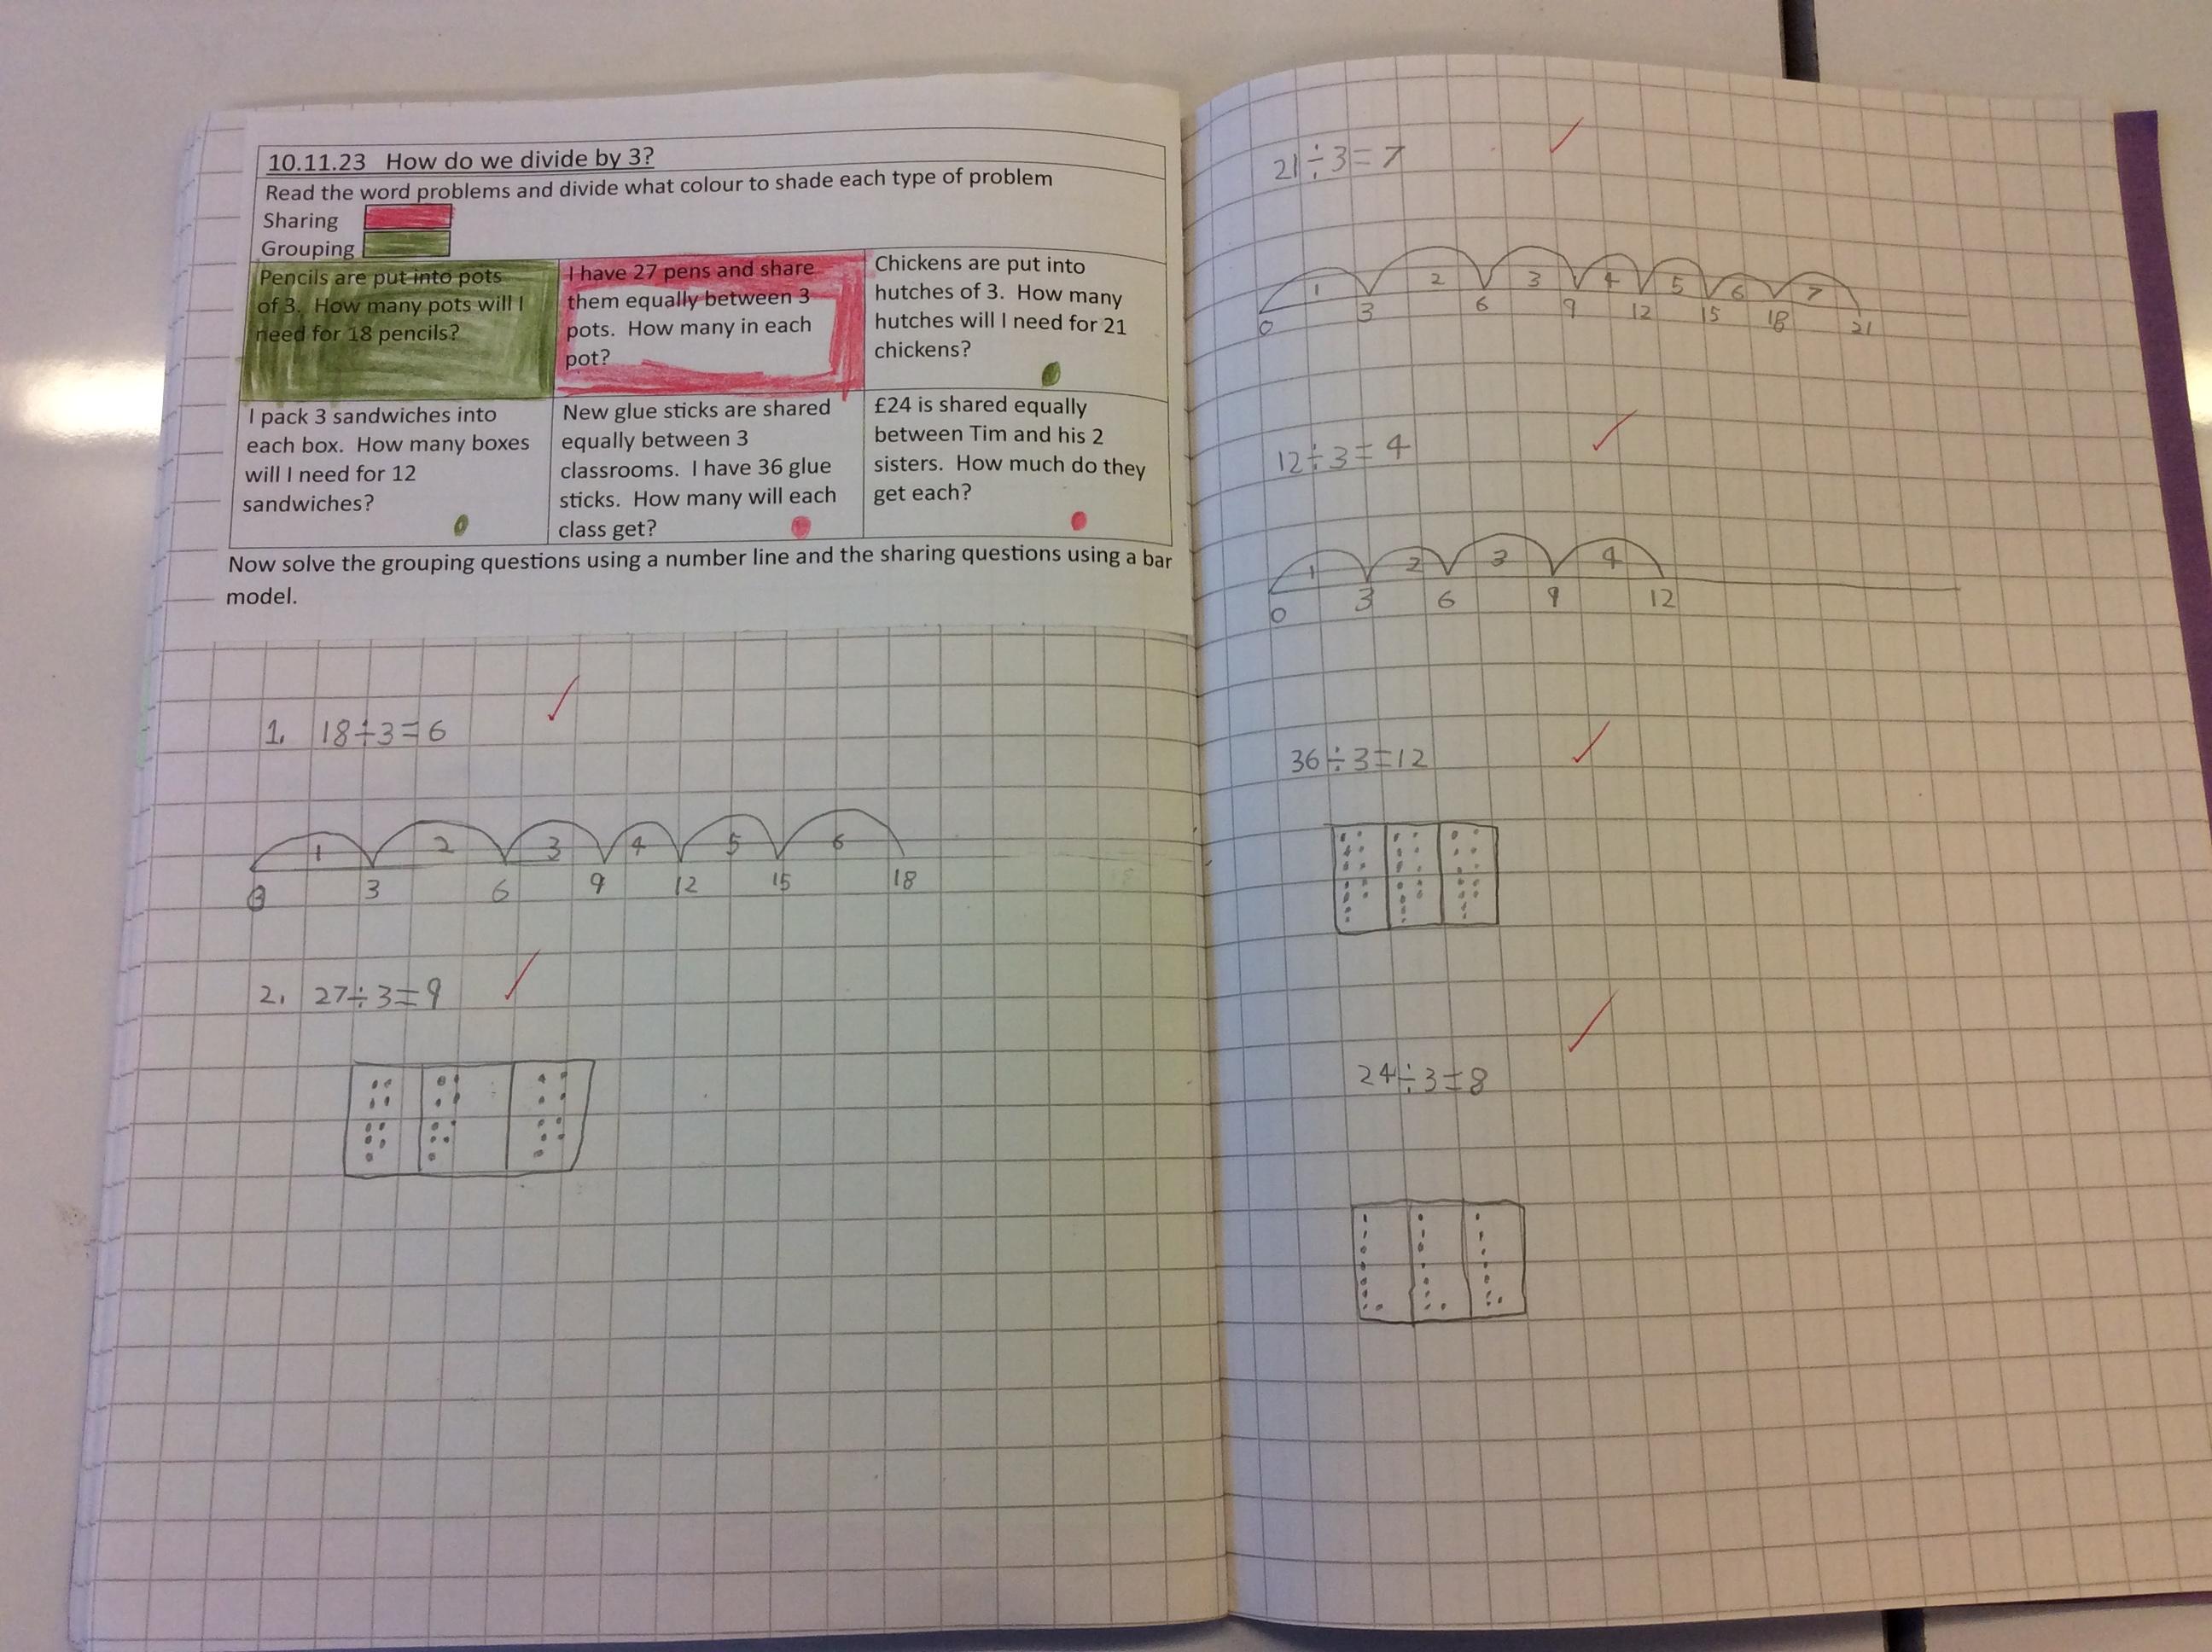 10.11.23 How do we divide by 3?
Read the word problems and divide what colour to shade each type of problem
Sharing
Grouping
Pencils are put into pots
of 3. How many pots will I
need for 18 pencils?
I have 27 pens and share
them equally between 3
pots. How many in each
pot?
Chickens are put into
hutches of 3. How many
hutches will I need for 21
chickens?
I pack 3 sandwiches into
each box. How many boxes
will I need for 12
sandwiches?
New glue sticks are shared
equally between 3
classrooms. I have 36 glue
sticks. How many will each
class get?
£24 is shared equally
between Tim and his 2
sisters. How much do they
get each?
Now solve the grouping questions using a number line and the sharing questions using a bar
model.
1. 18÷3=6
1 2 3 4 5 6
0 3 6 9 12 15 18
2. 27÷3=9
21÷3=7
1 2 3 4 5 6 7
0 3 6 9 12 15 18 21
12÷3=4
1 2 3 4
0 3 6 9 12
36÷3=12
24÷3=8